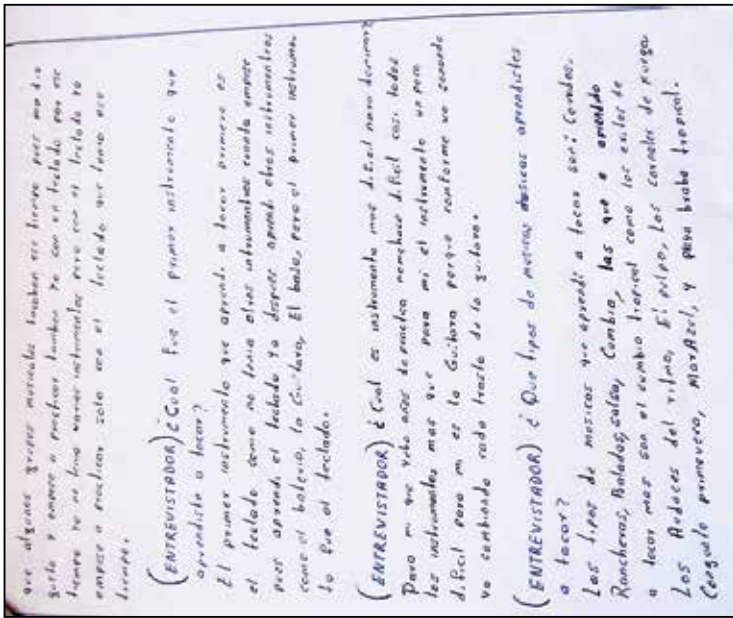 que algunos grupos musicales tambien ese tiempo pues me dio
gusto y empese a practicar tambien yo con un teclado por ese
tiempo yo no tenia varios instrumentos pero con el teclado yo
empece a practicar solo con el teclado que tenia ese
tiempo.
(ENTREVISTADOR) ¿Cual fue el primer instrumento que
aprendiste a tocar?
El primer instrumento que aprendi a tocar primero es
el teclado como no tenia otros instrumentos cuando empese
pues aprendi el teclado ya despues aprendi otros instrumentos
como el bateria, la Guitara, El bajo, pero el primer instrumen
to fue el teclado.
(ENTREVISTADOR) ¿ Cual es instrumento mas dificil para dominar?
Para mi que yebo años de practica nomehace dificil casi todos
los instrumentos mas que para mi el instrumento un poco
dificil para mi es la Guitara porque conforme va sonando
va cambiando cada traste de la guitara.
(ENTREVISTADOR) ¿ Que tipos de musicas aprendistes
a tocar?
Los tipos de musicas que aprendi a tocar son: Coridos.
Rancheras, Baladas, salsa, Cumbia, las que e aprendido
a tocar mas son el cumbia tropical como los exitos de
Los Audaces del ritmo, El pulpo, Los Canales de
Conguito primavera, MarAzul, y pura tropical.